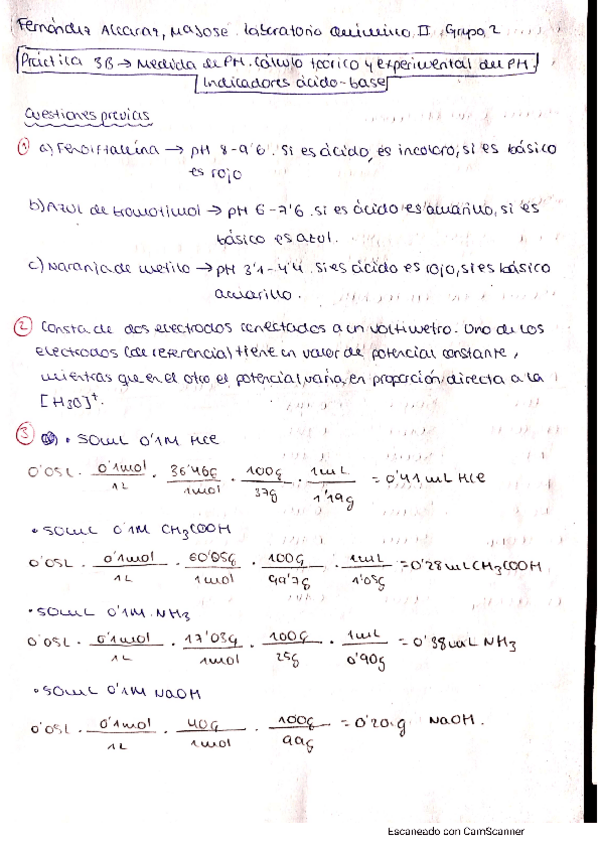 Fernández Alcaraz, MaJosé. Laboratorio Químico II. Grupo 2
Práctica 3B → Medida de PH. Cálculo teórico y experimental del PH.
Indicadores ácido-base
Cuestiones previas
① a) Fenolftaleína → pH 8-9'6. Si es ácido, es incoloro, si es básico
es rojo
b) Azul de bromotimol → pH 6-7'6. si es ácido es amarillo, si es
básico es azul.
c) Naranja de metilo → pH 3'1-4'4. si es ácido es rojo, si es básico
amarillo.
② Consta de dos electrodos conectados a un voltímetro. Uno de los
electrodos (de referencia) tiene un valor de potencial constante,
mientras que en el otro el potencial varía en proporción directa a la
[H3O]+.
③ a) • 50mL 0'1M HCl
0'05L · 0'1mol/1L · 36'46g/1mol · 100g/37g · 1mL/1'19g = 0'41mL HCl
• 50mL 0'1M CH3COOH
0'05L · 0'1mol/1L · 60'05g/1mol · 100g/99'7g · 1mL/1'05g = 0'28mL CH3COOH
• 50mL 0'1M NH3
0'05L · 0'1mol/1L · 17'03g/1mol · 100g/25g · 1mL/0'90g = 0'38mL NH3
• 50mL 0'1M NaOH
0'05L · 0'1mol/1L · 40g/1mol · 100g/99g = 0'20g NaOH.
Escaneado con CamScanner